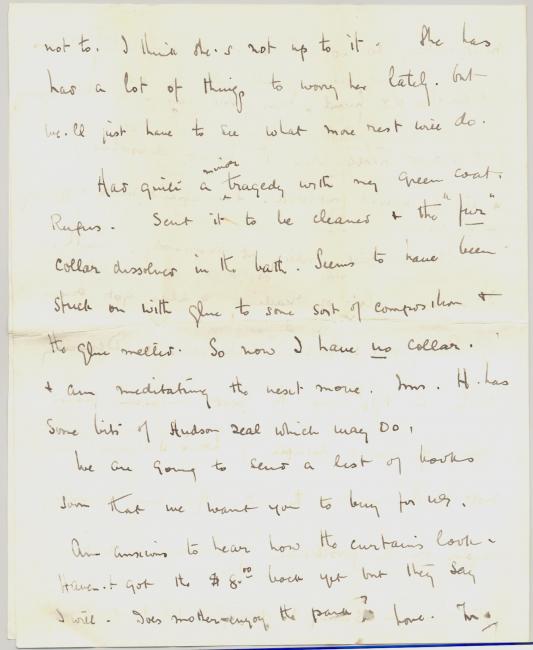 not to. I think she.s not up to it. She has
had a lot of things to worry her lately. but
we.ll just have to see what more rest will do.
Had quite a minor tragedy with my green coat.
Rufus. Sent it to be cleaned + the "fur"
collar dissolved in the bath. Seems to have been
stuck on with glue to some sort of composition +
the glue melted. So now I have no collar.
+ am meditating the next move. Mrs. H. has
some bits of Hudson seal which may do.
We are going to send a list of books
soon that we want you to buy for us.
Am anxious to hear how the curtains look.
Haven.t got the $8.00 back yet but they say
I will. Does mother enjoy the park? Love.